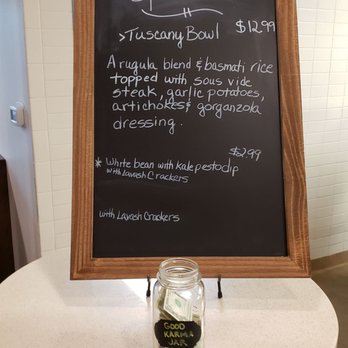 $12.99
>Tuscany Bowl
Arugula blend & basmati rice
topped with sous vide
steak, garlic potatoes,
artichokes & gorganzola
dressing.
$2.99
* White bean with kale pesto dip
with Lavash Crackers
with Lavash Crackers
GOOD
KARMA
JAR